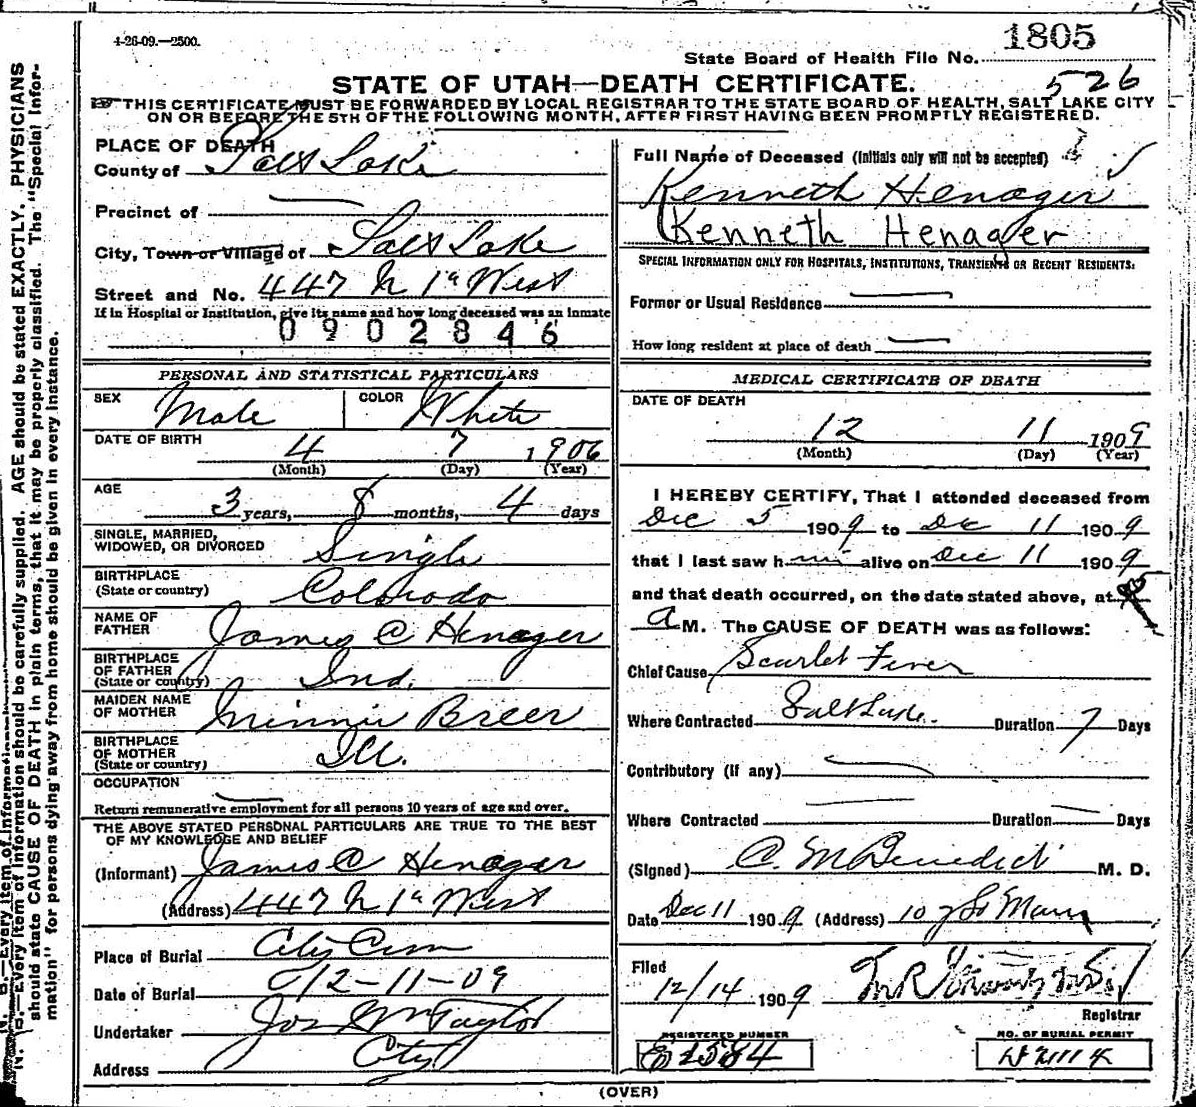 4-26-09.—2500.
1805
State Board of Health File No.
526
STATE OF UTAH—DEATH CERTIFICATE.
THIS CERTIFICATE MUST BE FORWARDED BY LOCAL REGISTRAR TO THE STATE BOARD OF HEALTH, SALT LAKE CITY
ON OR BEFORE THE 5TH OF THE FOLLOWING MONTH, AFTER FIRST HAVING BEEN PROMPTLY REGISTERED.
PLACE OF DEATH
County of Salt Lake
Precinct of —
City, Town or Village of Salt Lake
Street and No. 447 N 1st West
If in Hospital or Institution, give its name and how long deceased was an inmate
0902846
PERSONAL AND STATISTICAL PARTICULARS
SEX Male COLOR White
DATE OF BIRTH 4 7 1906
(Month) (Day) (Year)
AGE
3 years, 8 months, 4 days
SINGLE, MARRIED,
WIDOWED, OR DIVORCED Single
BIRTHPLACE
(State or country) Colorado
NAME OF
FATHER James C Henager
BIRTHPLACE
OF FATHER
(State or country) Ind.
MAIDEN NAME
OF MOTHER Minnie Breer
BIRTHPLACE
OF MOTHER
(State or country) Ill.
OCCUPATION —
Return remunerative employment for all persons 10 years of age and over.
THE ABOVE STATED PERSONAL PARTICULARS ARE TRUE TO THE BEST
OF MY KNOWLEDGE AND BELIEF
(Informant) James C Henager
(Address) 447 N 1st West
Place of Burial City Cem
Date of Burial 12-11-09
Undertaker Jos Wm Taylor
Address City
Full Name of Deceased (Initials only will not be accepted)
Kenneth Henager
Kenneth Henager
SPECIAL INFORMATION ONLY FOR HOSPITALS, INSTITUTIONS, TRANSIENTS OR RECENT RESIDENTS:
Former or Usual Residence —
How long resident at place of death —
MEDICAL CERTIFICATE OF DEATH
DATE OF DEATH
12 11 1909
(Month) (Day) (Year)
I HEREBY CERTIFY, That I attended deceased from
Dec 5 1909 to Dec 11 1909
that I last saw him alive on Dec 11 1909
and that death occurred, on the date stated above, at
a M. The CAUSE OF DEATH was as follows:
Chief Cause Scarlet Fever
Where Contracted Salt Lake. Duration 7 Days
Contributory (if any) —
Where Contracted — Duration — Days
(Signed) C. M Benedict M. D.
Date Dec 11 1909 (Address) So Main
Filed
12/14 1909
Registrar
REGISTERED NUMBER
NO. OF BURIAL PERMIT
(OVER)
N. B.—Every item of information should be carefully supplied. AGE should be stated EXACTLY. PHYSICIANS
should state CAUSE OF DEATH in plain terms, that it may be properly classified. The "Special Infor-
mation" for persons dying away from home should be given in every instance.